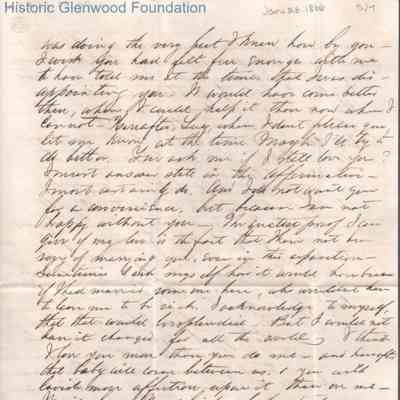 Historic Glenwood Foundation
was doing the very best I knew how by you —
I wish you had felt free enough with me
to have told me at the time that I was dis-
appointing you. It would have come better
then, when I could help it than now when I
can not — Hereafter, Lucy, when I dont please you,
let me know at the time & maybe I'll try to
do better. You ask me if I still love you?
I must answer still in the affirmative —
I most certainly do. And I do not want you
for a convenience, but because I am not
happy without you — The greatest proof I can
give of my love is the fact that I have not been
sorry of marrying you, even in this separation —
Sometimes I ask myself how it would have been
if I had married some one here, who would not have
to leave me to be sick. I acknowledge to myself,
that that would be splendid. But I would not
have it changed for all the world. I think
I love you more than you do me — and
that baby will come between us & you will
lavish more affection upon it than on me —